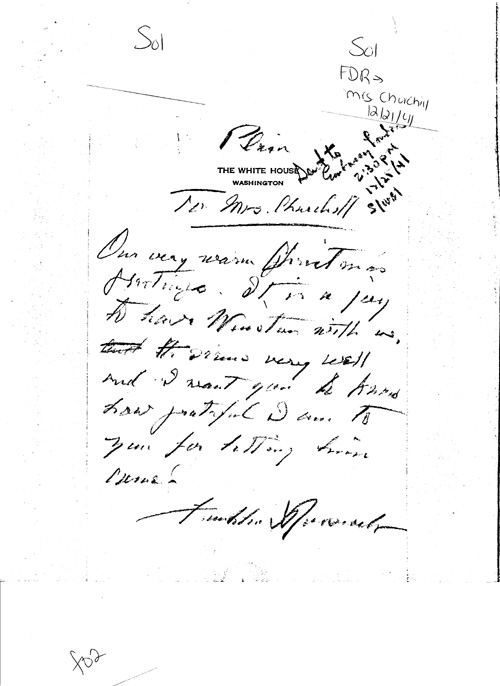 Sol
Sol
FDR→
Mrs Churchill
12/21/41
Plain
Sent to
Embassy London
2:30 PM
12/25/41
THE WHITE HOUSE
WASHINGTON
To Mrs. Churchill
Our very warm Christmas
greetings. It is a joy
to have Winston with us.
He seems very well
and I want you to know
how grateful I am to
you for letting him
come!
Franklin D Roosevelt